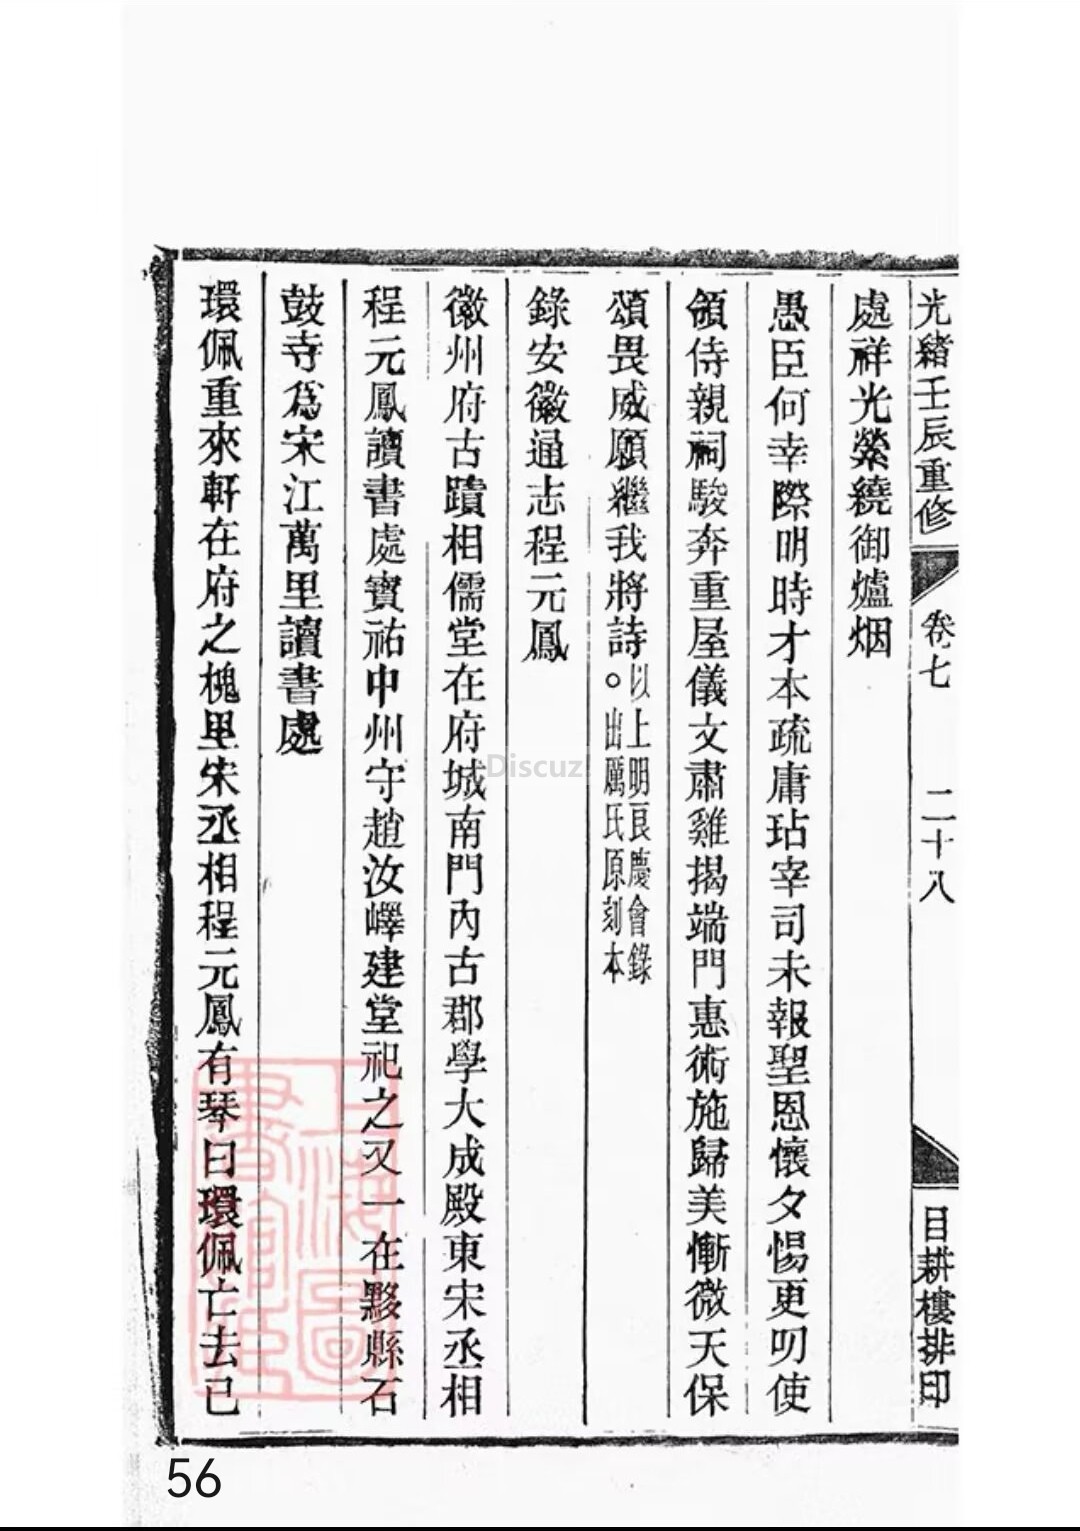 光緒壬辰重修
卷七
二十八
目耕樓排印
處祥光縈繞御爐烟
愚臣何幸際明時才本疏庸玷宰司未報聖恩懷夕惕更叨使
領侍親祠駿奔重屋儀文肅雞揭端門惠術施歸美慚微天保
頌畏威願繼我將詩。以上明良慶會錄
出厲氏原刻本
錄安徽通志程元鳳
徽州府古蹟相儒堂在府城南門內古郡學大成殿東宋丞相
程元鳳讀書處寳祐中州守趙汝嶧建堂祀之又一在黟縣石
鼓寺爲宋江萬里讀書處
環佩重來軒在府之槐里宋丞相程元鳳有琴曰環佩亡去已
上海圖
書館藏
Discuz!
56